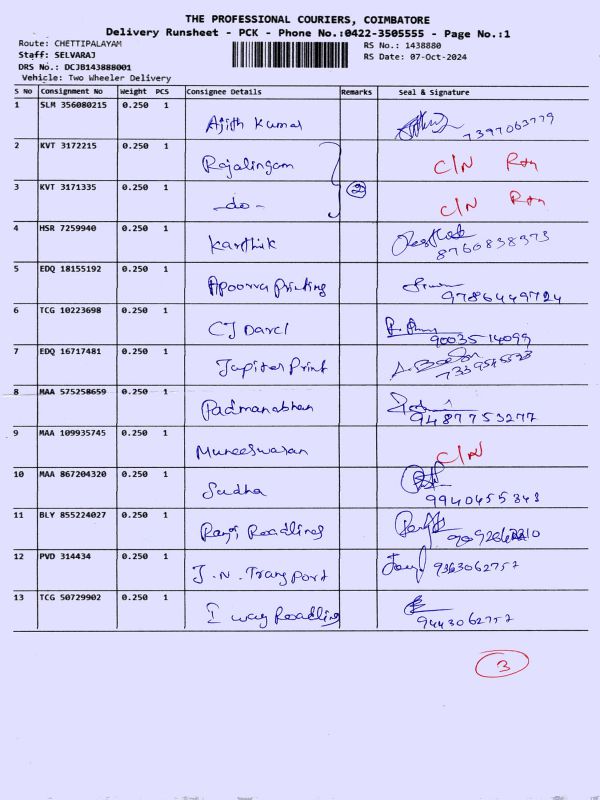 THE PROFESSIONAL COURIERS, COIMBATORE
Delivery Runsheet - PCK - Phone No.:0422-3505555 - Page No.:1
Route: CHETTIPALAYAM RS No.: 1438880
Staff: SELVARAJ RS Date: 07-Oct-2024
DRS No.: DCJB143888001
Vehicle: Two Wheeler Delivery
S No Consignment No Weight PCS Consignee Details Remarks Seal & Signature
1 SLM 356080215 0.250 1
Ajith Kumar 7397063779
2 KVT 3172215 0.250 1
Rajalingam C/N
3 KVT 3171335 0.250 1 2
-do- C/N
4 HSR 7259940 0.250 1
Karthik 8760838373
5 EDQ 18155192 0.250 1
Apoorva Printing 9786449724
6 TCG 10223698 0.250 1
CJ Darcl 9003514099
7 EDQ 16717481 0.250 1
Jupiter Print
8 MAA 575258659 0.250 1
Padmanabhan 9487753277
9 MAA 109935745 0.250 1
Muneeswaran C/N
10 MAA 867204320 0.250 1
Sudha 9940455343
11 BLY 855224027 0.250 1
Roadlines
12 PVD 314434 0.250 1
J.N. Transport 9363062757
13 TCG 50729902 0.250 1
I way Roadling 9443062757
3